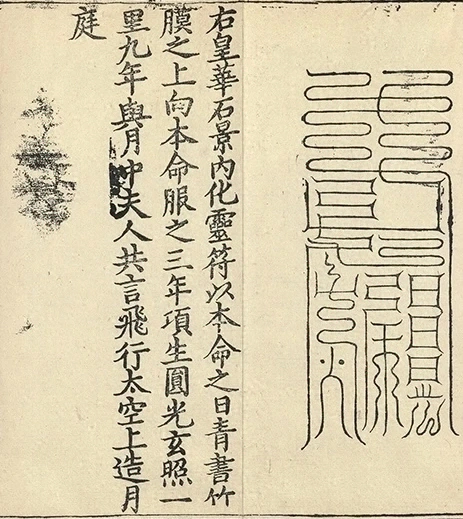 右皇華石景內化靈符以本命之日青書竹
膜之上向本命服之三年項生圓光玄照一
里九年與月中夫人共言飛行太空上造月
庭